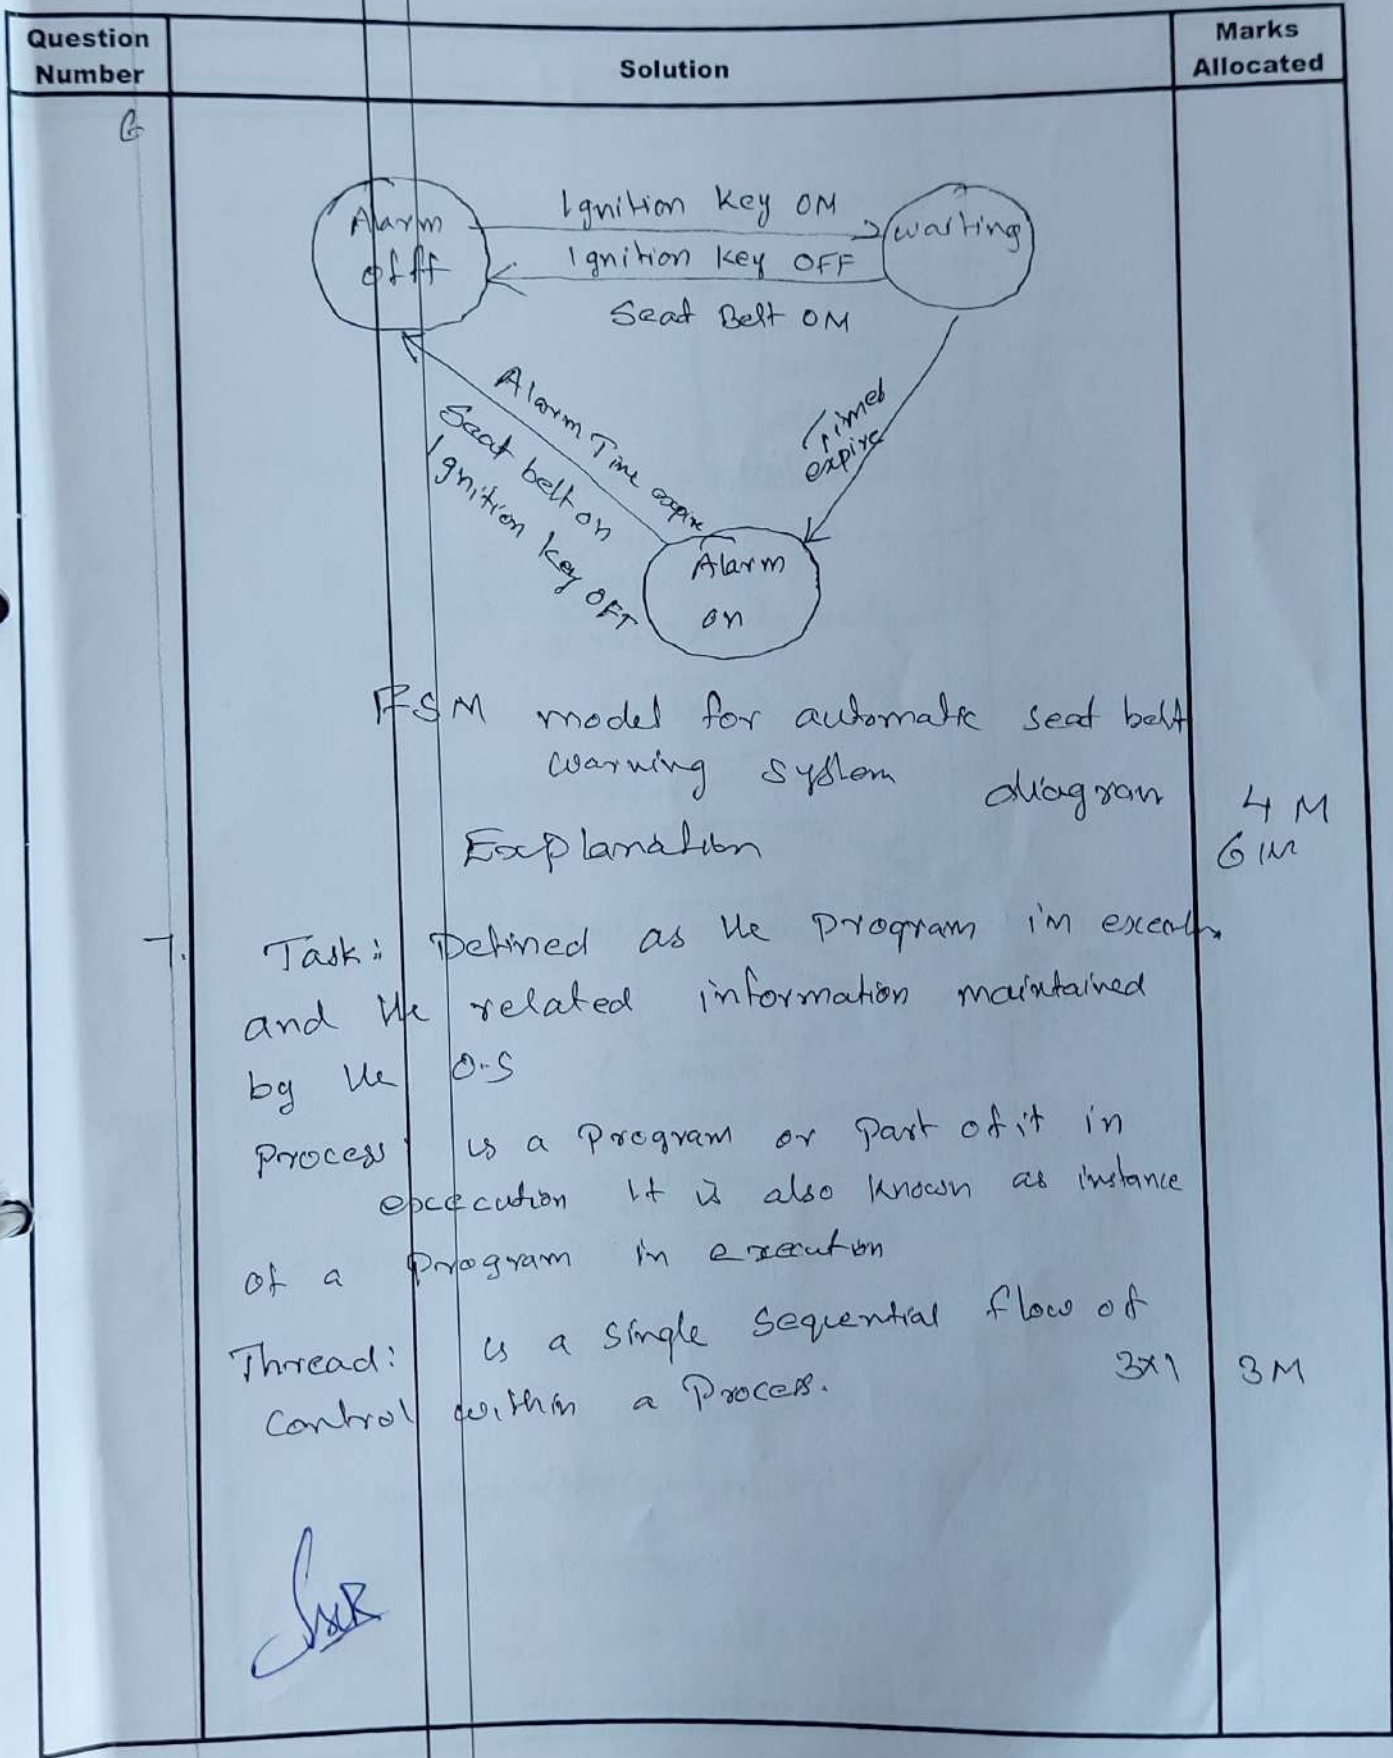 Question
Number
Solution
Marks
Allocated
6
Alarm
off
Ignition Key ON
Ignition Key OFF
Seat Belt ON
waiting
Alarm Time expire
Seat belt on
Ignition key OFF
Timer
expire
Alarm
on
FSM model for automatic seat belt
warning system
diagram 4 M
Explanation 6 M
7. Task: Defined as the program in
and the related information maintained
by the O.S
Process: is a Program or Part of it in
execution It is also known as instance
of a Program in execution
Thread: is a single Sequential flow of
control within a Process. 3x1 3M